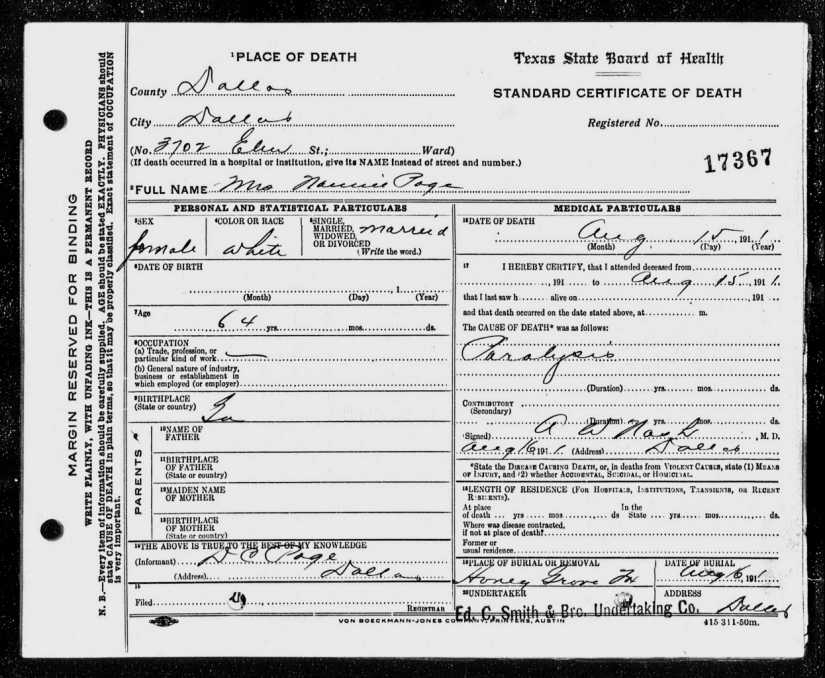 MARGIN RESERVED FOR BINDING
WRITE PLAINLY, WITH UNFADING INK—THIS IS A PERMANENT RECORD
N. B.—Every item of information should be carefully supplied. AGE should be stated EXACTLY. PHYSICIANS should
state CAUSE OF DEATH in plain terms, so that it may be properly classified. Exact statement of OCCUPATION
is very important.
¹PLACE OF DEATH
County Dallas
City Dallas
(No. 3702 Elm St.; Ward)
(If death occurred in a hospital or institution, give its NAME instead of street and number.)
Texas State Board of Health
STANDARD CERTIFICATE OF DEATH
Registered No.
17367
²FULL NAME Mrs Nannie Page
PERSONAL AND STATISTICAL PARTICULARS
³SEX
female
⁴COLOR OR RACE
white
⁵SINGLE,
MARRIED,
WIDOWED,
OR DIVORCED
(Write the word.)
married
⁶DATE OF BIRTH
, 1
(Month) (Day) (Year)
⁷Age
64 yrs. mos. ds.
⁸OCCUPATION
(a) Trade, profession, or
particular kind of work
(b) General nature of industry,
business or establishment in
which employed (or employer)
⁹BIRTHPLACE
(State or country)
PARENTS
¹⁰NAME OF
FATHER
¹¹BIRTHPLACE
OF FATHER
(State or country)
¹²MAIDEN NAME
OF MOTHER
¹³BIRTHPLACE
OF MOTHER
(State or country)
¹⁴THE ABOVE IS TRUE TO THE BEST OF MY KNOWLEDGE
(Informant) D C Page
(Address) Dallas
¹⁵
Filed , 191
REGISTRAR
MEDICAL PARTICULARS
¹⁶DATE OF DEATH
Aug 15, 1911
(Month) (Day) (Year)
¹⁷ I HEREBY CERTIFY, that I attended deceased from
, 191 to Aug 15, 1911.
that I last saw h alive on , 191
and that death occurred on the date stated above, at m.
The CAUSE OF DEATH* was as follows:
Paralysis
(Duration) yrs. mos. ds.
CONTRIBUTORY
(Secondary)
(Duration) yrs. mos. ds.
(Signed) A W Nash, M. D.
Aug 16, 1911. (Address) Dallas
*State the DISEASE CAUSING DEATH, or, in deaths from VIOLENT CAUSES, state (1) MEANS
OF INJURY, and (2) whether ACCIDENTAL, SUICIDAL, or HOMICIDAL.
¹⁸LENGTH OF RESIDENCE (FOR HOSPITALS, INSTITUTIONS, TRANSIENTS, OR RECENT
RESIDENTS).
At place In the
of death yrs mos. , ds State yrs. mos. ds.
Where was disease contracted,
if not at place of death?
Former or
usual residence
¹⁹PLACE OF BURIAL OR REMOVAL
Honey Grove Tx
DATE OF BURIAL
Aug 16, 1911
²⁰UNDERTAKER
Ed. C. Smith & Bro. Undertaking Co.
ADDRESS
Dallas
VON BOECKMANN-JONES COMPANY, PRINTERS, AUSTIN
415 311-50m.